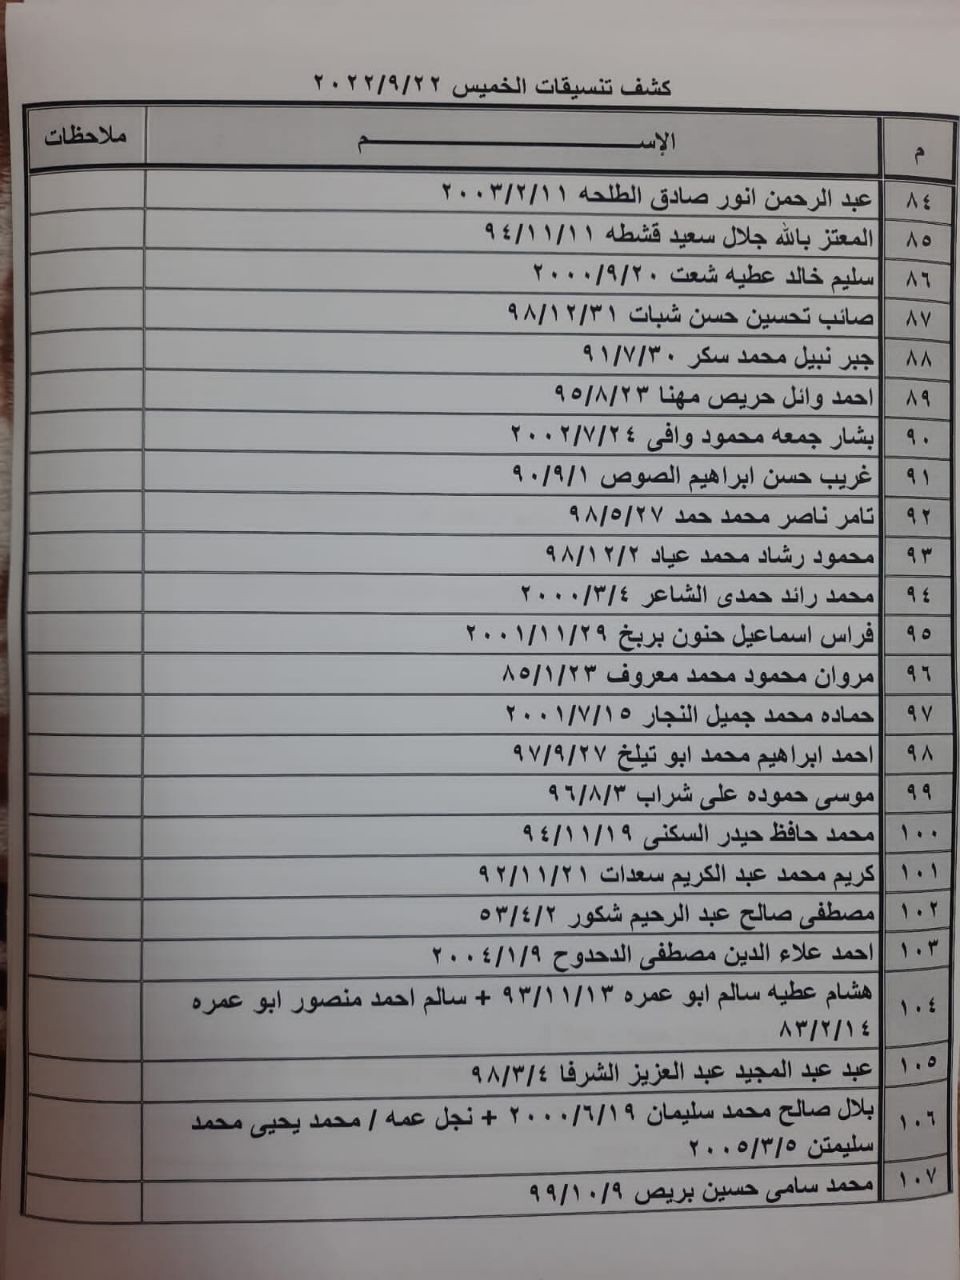 كشف تنسيقات الخميس ٢٠٢٢/٩/٢٢
م الإســـــــــــــــــــــم ملاحظات
٨٤ عبد الرحمن انور صادق الطلحه ٢٠٠٣/٢/١١
٨٥ المعتز بالله جلال سعيد قشطه ٩٤/١١/١١
٨٦ سليم خالد عطيه شعت ٢٠٠٠/٩/٢٠
٨٧ صائب تحسين حسن شبات ٩٨/١٢/٣١
٨٨ جبر نبيل محمد سكر ٩١/٧/٣٠
٨٩ احمد وائل حريص مهنا ٩٥/٨/٢٣
٩٠ بشار جمعه محمود وافى ٢٠٠٢/٧/٢٤
٩١ غريب حسن ابراهيم الصوص ٩٠/٩/١
٩٢ تامر ناصر محمد حمد ٩٨/٥/٢٧
٩٣ محمود رشاد محمد عياد ٩٨/١٢/٢
٩٤ محمد رائد حمدى الشاعر ٢٠٠٠/٣/٤
٩٥ فراس اسماعيل حنون بربخ ٢٠٠١/١١/٢٩
٩٦ مروان محمود محمد معروف ٨٥/١/٢٣
٩٧ حماده محمد جميل النجار ٢٠٠١/٧/١٥
٩٨ احمد ابراهيم محمد ابو تيلخ ٩٧/٩/٢٧
٩٩ موسى حموده على شراب ٩٦/٨/٣
١٠٠ محمد حافظ حيدر السكنى ٩٤/١١/١٩
١٠١ كريم محمد عبد الكريم سعدات ٩٢/١١/٢١
١٠٢ مصطفى صالح عبد الرحيم شكور ٥٣/٤/٢
١٠٣ احمد علاء الدين مصطفى الدحدوح ٢٠٠٤/١/٩
١٠٤ هشام عطيه سالم ابو عمره ٩٣/١١/١٣ + سالم احمد منصور ابو عمره
٨٣/٢/١٤
١٠٥ عبد عبد المجيد عبد العزيز الشرفا ٩٨/٣/٤
١٠٦ بلال صالح محمد سليمان ٢٠٠٠/٦/١٩ + نجل عمه / محمد يحيى محمد
سليمتن ٢٠٠٥/٣/٥
١٠٧ محمد سامى حسين بريص ٩٩/١٠/٩